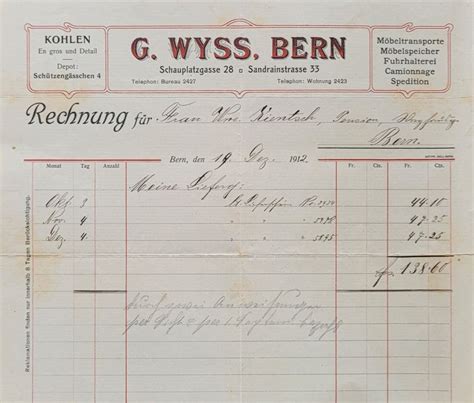 KOHLEN
En gros und Detail
Depot:
Schützengässchen 4
G. WYSS, BERN
Schauplatzgasse 28 □ Sandrainstrasse 33
Telephon: Bureau 2427 Telephon: Wohnung 2423
Möbeltransporte
Möbelspeicher
Fuhrhalterei
Camionnage
Spedition
Rechnung für Frau Wwe. Zientsch, Pension,
Bern.
Bern, den 19 Dez. 1912.
Monat Tag Anzahl Fr. Cts. Fr. Cts.
Meine Lieferg:
Okt. 3 No 44.10
Nov. 4 " " 47-25
Dez. 4 " " 5895 47-25
frs. 138.60
durch zwei Anweisungen
per Post
Reklamationen finden nur innerhalb 8 Tagen Berücksichtigung.